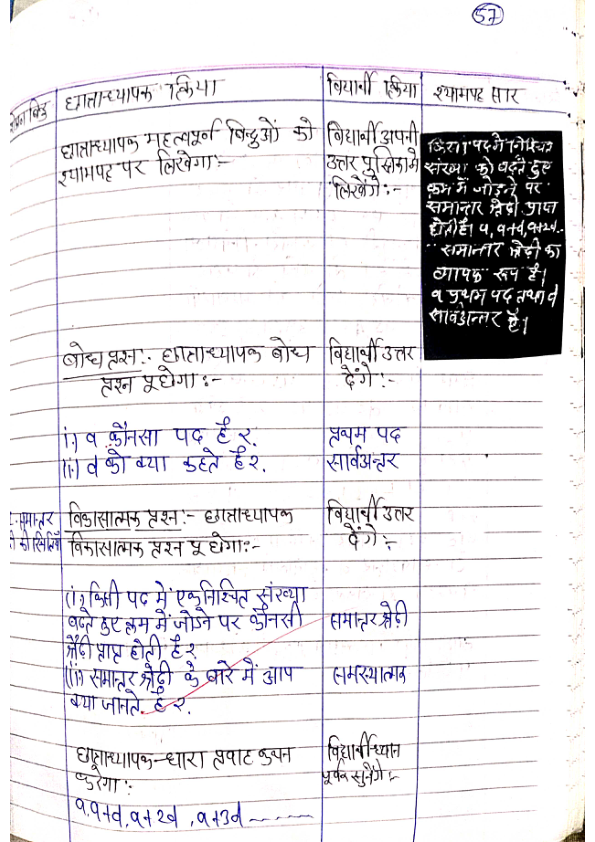 57
छात्राध्यापक क्रिया
विद्यार्थी क्रिया
श्यामपट्ट सार
छात्राध्यापक महत्वपूर्ण बिन्दुओं को
श्यामपट्ट पर लिखेगा:-
विद्यार्थी अपनी
उत्तर पुस्तिका में
लिखेंगे:-
किसी पद में निश्चित
संख्या को बढ़ते हुए
क्रम में जोड़ने पर
समान्तर श्रेढ़ी प्राप्त
होती है। a, a+d, a+2d..
समान्तर श्रेढ़ी का
व्यापक रूप है।
a प्रथम पद तथा d
सार्वअन्तर है।
बोध प्रश्न:- छात्राध्यापक बोध
प्रश्न पूछेगा:-
विद्यार्थी उत्तर
देंगे:-
(i) a कौनसा पद है?
प्रथम पद
(ii) d को क्या कहते है?
सार्वअन्तर
समान्तर
विकासात्मक प्रश्न:- छात्राध्यापक
विकासात्मक प्रश्न पूछेगा:-
विद्यार्थी उत्तर
देंगे:-
(i) किसी पद में एक निश्चित संख्या
बढ़ते हुए क्रम में जोड़ने पर कौनसी
श्रेढ़ी प्राप्त होती है?
समान्तर श्रेढ़ी
(ii) समान्तर श्रेढ़ी के बारे में आप
क्या जानते है?
समस्यात्मक
छात्राध्यापक-धारा प्रवाह कथन
करेगा:-
विद्यार्थी ध्यान
पूर्वक सुनेंगे:-
a, a+d, a+2d, a+3d ------